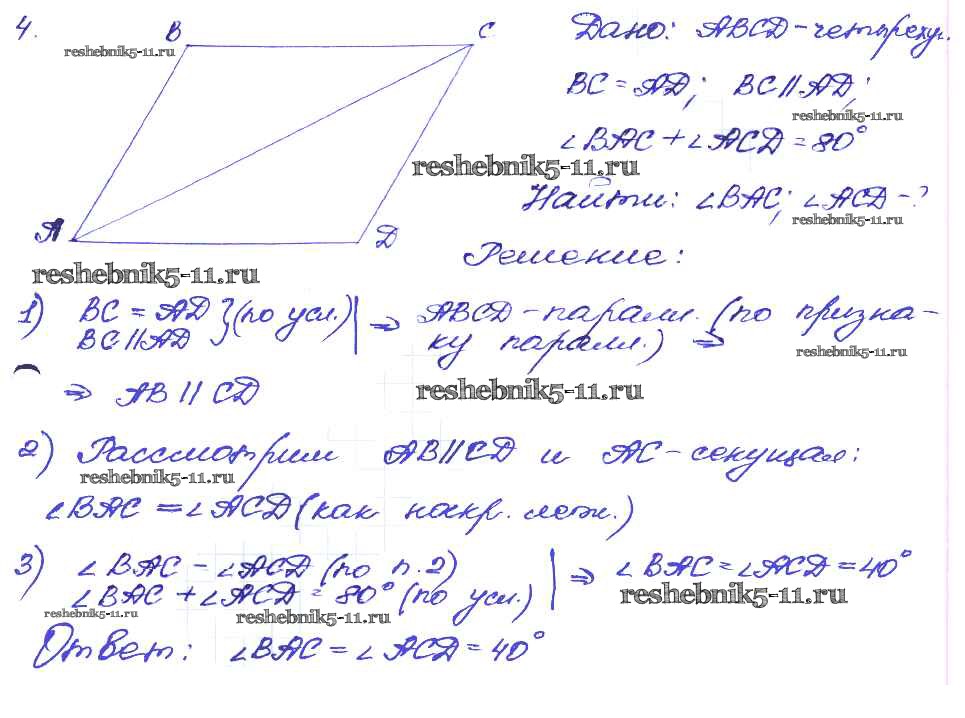 4.
B
C
A
D
reshebnik5-11.ru
Дано: ABCD - четырехуг.
BC = AD; BC || AD;
reshebnik5-11.ru
∠BAC + ∠ACD = 80°
reshebnik5-11.ru
Найти: ∠BAC; ∠ACD - ?
reshebnik5-11.ru
Решение:
reshebnik5-11.ru
1) BC = AD } (по усл.) | ⇒ ABCD - паралл. (по призна-
BC || AD
ку паралл.) ⇒
reshebnik5-11.ru
⇒ AB || CD
reshebnik5-11.ru
2) Рассмотрим AB || CD и AC - секущая:
reshebnik5-11.ru
∠BAC = ∠ACD (как накр. леж.)
3) ∠BAC - ∠ACD (по п. 2) | ⇒ ∠BAC = ∠ACD = 40°
∠BAC + ∠ACD = 80° (по усл.)
reshebnik5-11.ru
reshebnik5-11.ru
reshebnik5-11.ru
Ответ: ∠BAC = ∠ACD = 40°